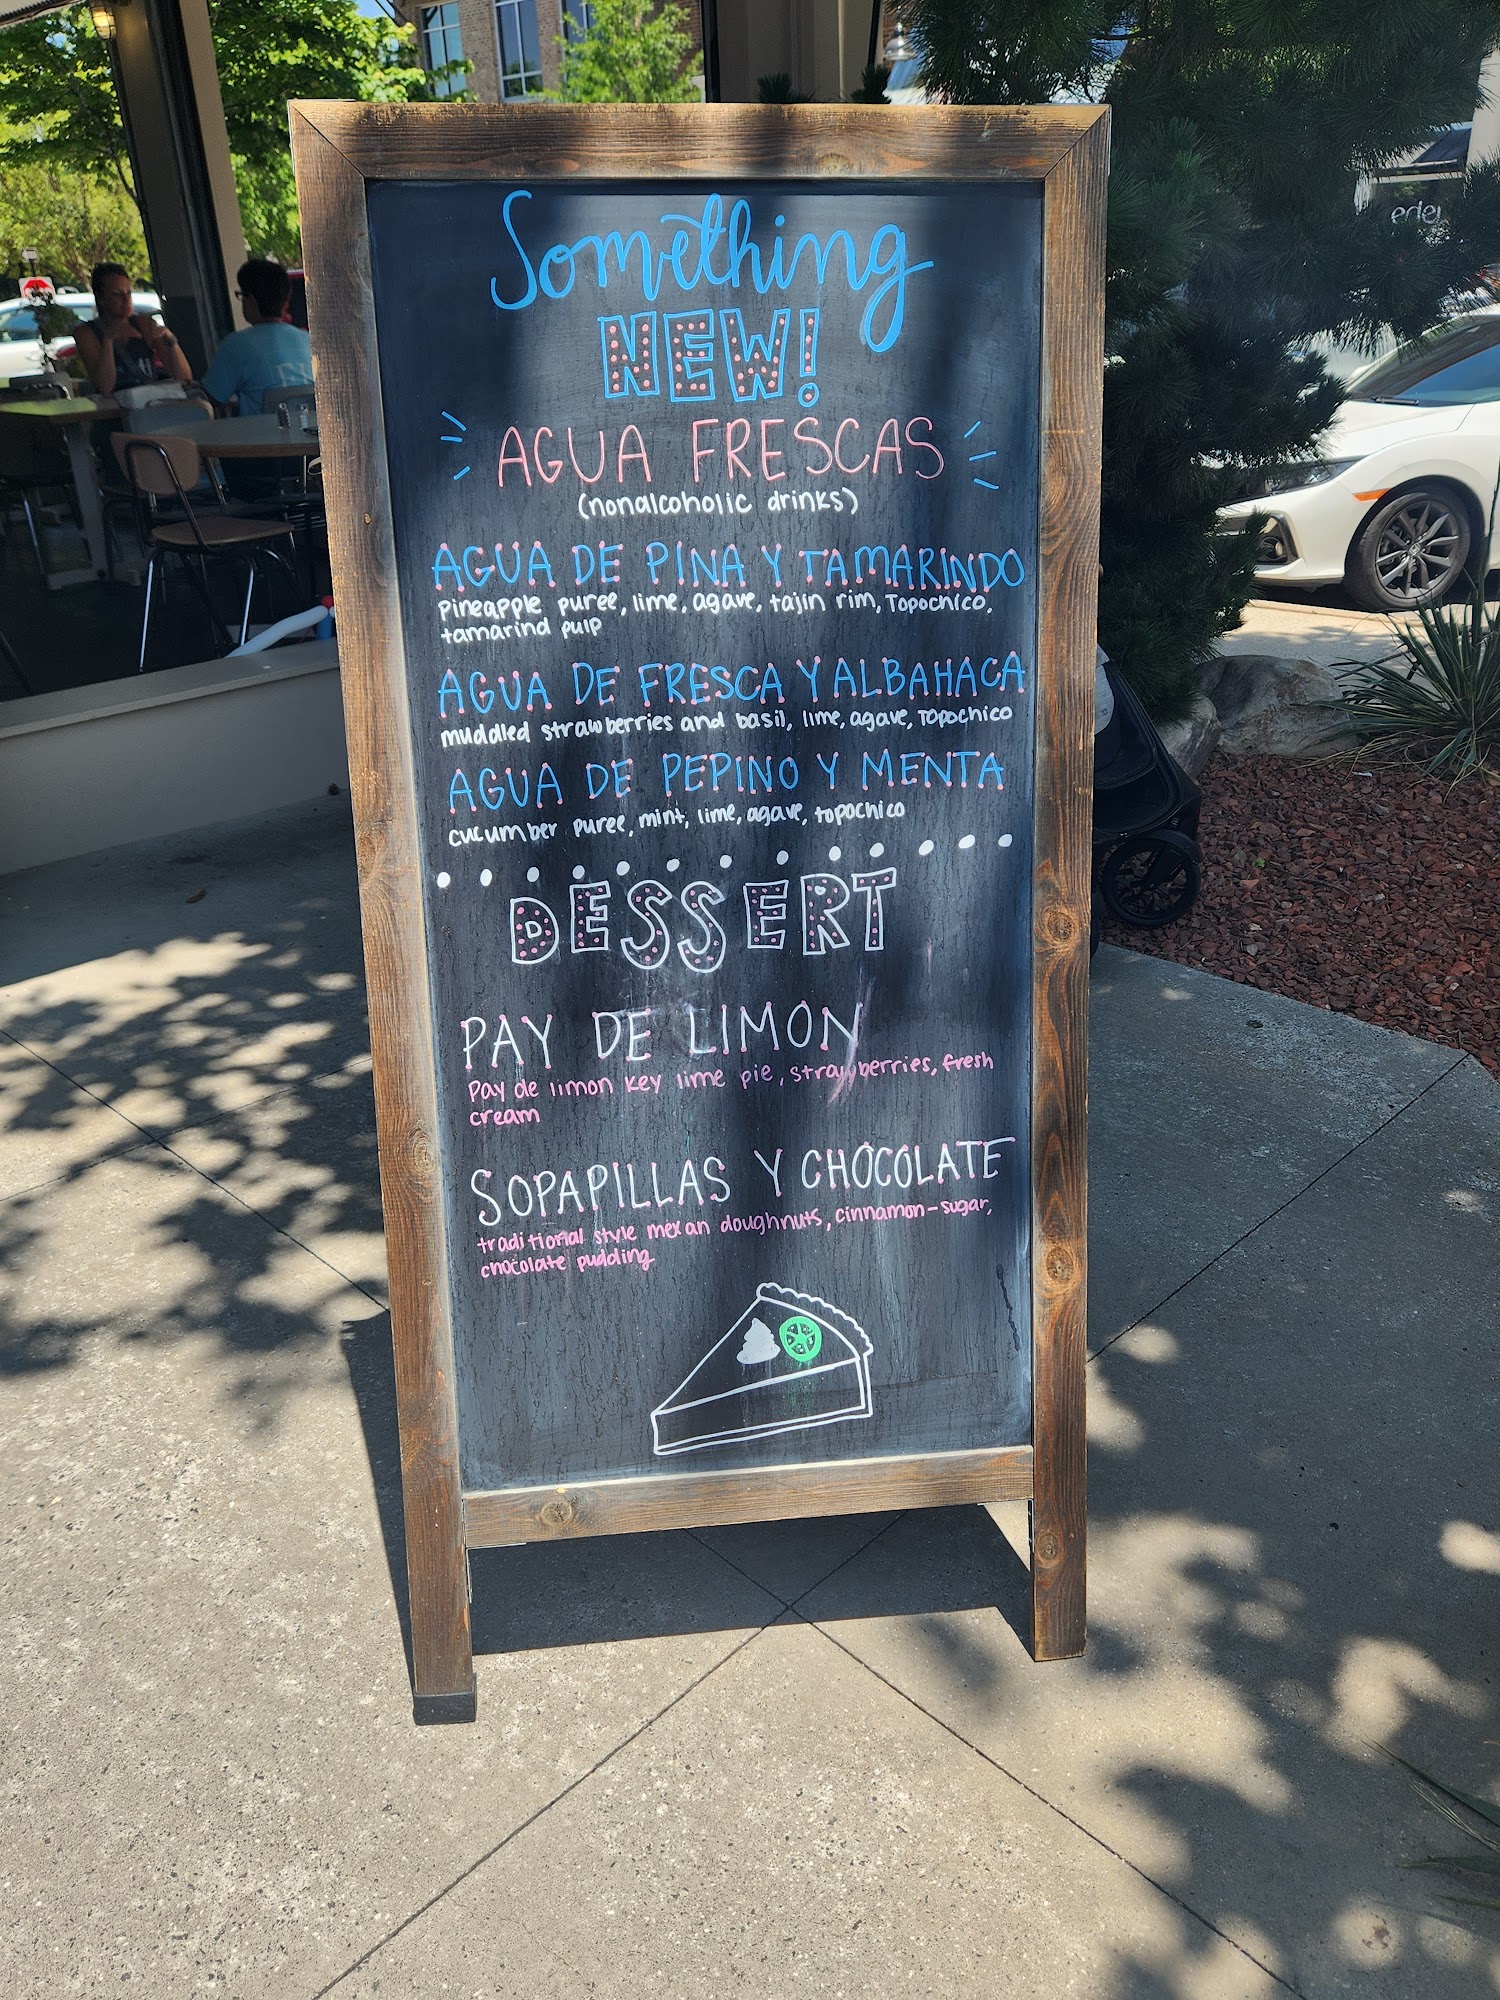 Something
NEW!
AGUA FRESCAS
(nonalcoholic drinks)
AGUA DE PINA Y TAMARINDO
pineapple puree, lime, agave, tajin rim, Topochico,
tamarind pulp
AGUA DE FRESCA Y ALBAHACA
muddled strawberries and basil, lime, agave, Topochico
AGUA DE PEPINO Y MENTA
cucumber puree, mint, lime, agave, topochico
DESSERT
PAY DE LIMON
Pay de limon key lime pie, strawberries, fresh
cream
SOPAPILLAS Y CHOCOLATE
traditional style mexican doughnuts, cinnamon-sugar,
chocolate pudding